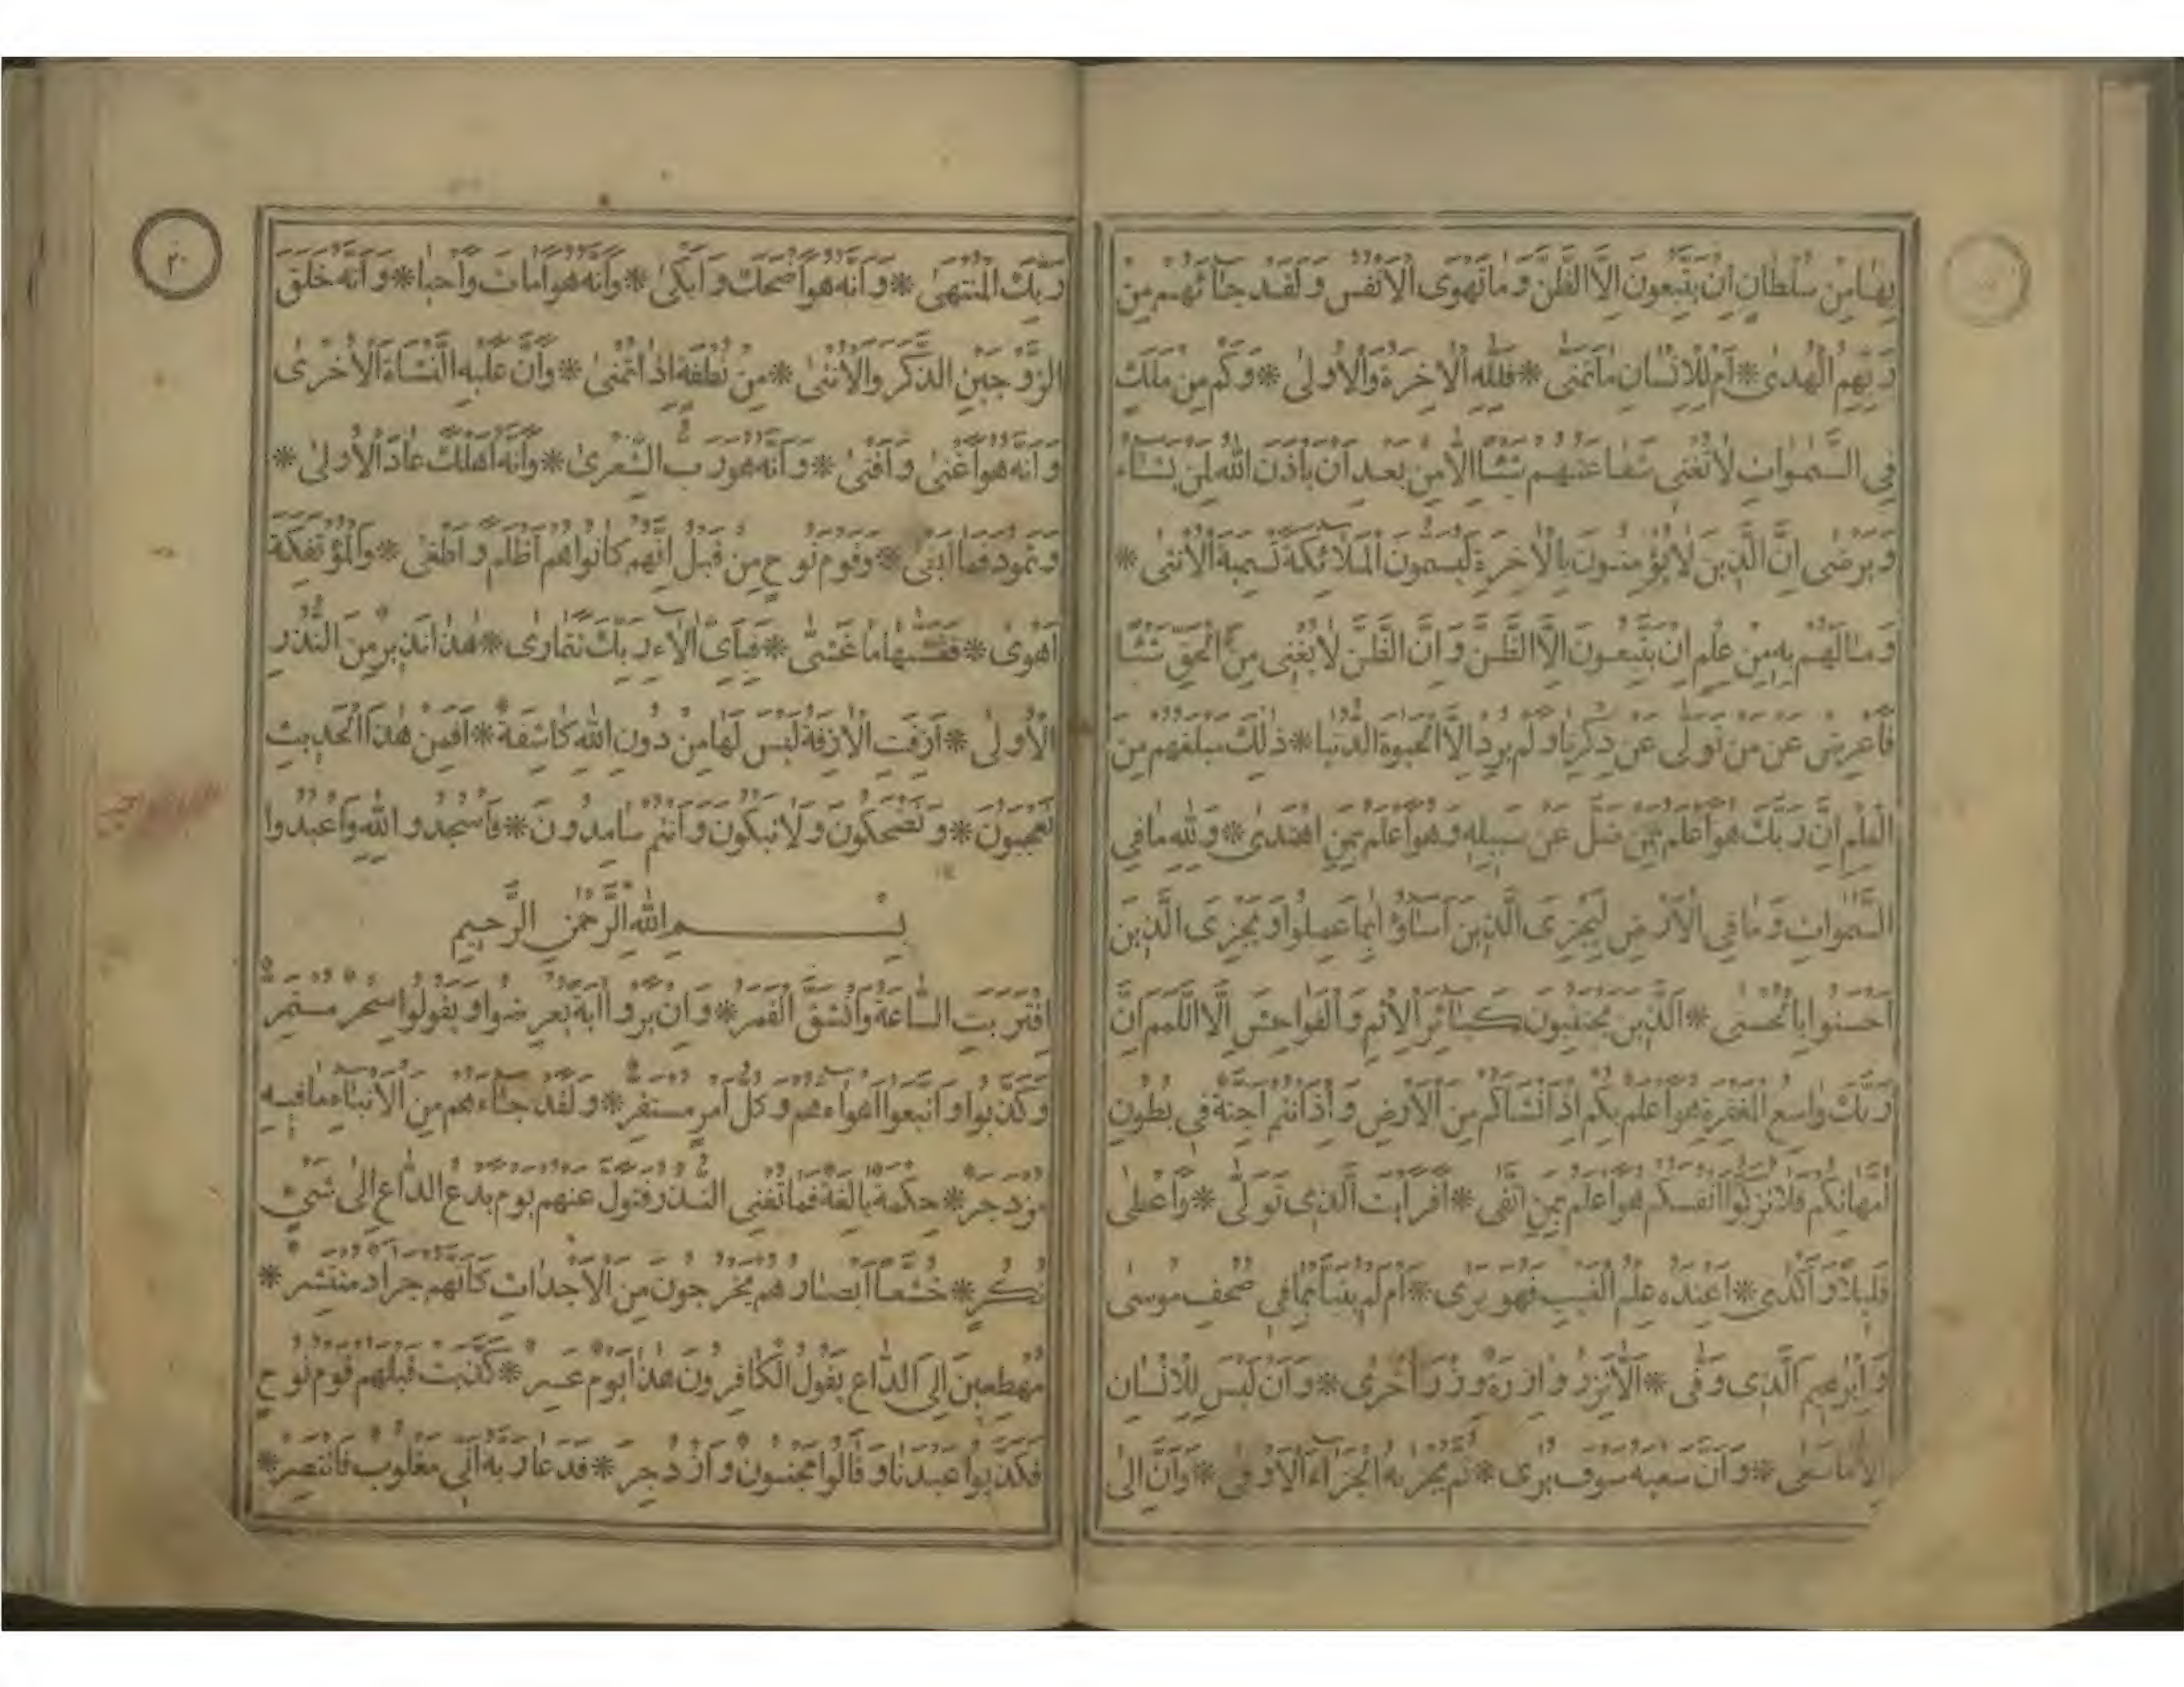 بِهَا مِنْ سُلْطَانٍ اِنْ يَتَّبِعُونَ اِلَّا الظَّنَّ وَمَا تَهْوَى الْاَنْفُسُ وَلَقَدْ جَائَهُمْ مِنْ
رَبِّهِمُ الْهُدٰى * اَمْ لِلْاِنْسَانِ مَا تَمَنّٰى * فَلِلّٰهِ الْاٰخِرَةُ وَالْاُولٰى * وَكَمْ مِنْ مَلَكٍ
فِي السَّمٰوَاتِ لَا تُغْنِي شَفَاعَتُهُمْ شَيْئًا اِلَّا مِنْ بَعْدِ اَنْ يَاْذَنَ اللّٰهُ لِمَنْ يَشَاءُ
وَيَرْضٰى اِنَّ الَّذِينَ لَا يُؤْمِنُونَ بِالْاٰخِرَةِ لَيُسَمُّونَ الْمَلَائِكَةَ تَسْمِيَةَ الْاُنْثٰى *
وَمَا لَهُمْ بِهِ مِنْ عِلْمٍ اِنْ يَتَّبِعُونَ اِلَّا الظَّنَّ وَاِنَّ الظَّنَّ لَا يُغْنِي مِنَ الْحَقِّ شَيْئًا
فَاَعْرِضْ عَنْ مَنْ تَوَلّٰى عَنْ ذِكْرِنَا وَلَمْ يُرِدْ اِلَّا الْحَيٰوةَ الدُّنْيَا * ذٰلِكَ مَبْلَغُهُمْ مِنَ
الْعِلْمِ اِنَّ رَبَّكَ هُوَ اَعْلَمُ بِمَنْ ضَلَّ عَنْ سَبِيلِهِ وَهُوَ اَعْلَمُ بِمَنِ اهْتَدٰى * وَلِلّٰهِ مَا فِي
السَّمٰوَاتِ وَمَا فِي الْاَرْضِ لِيَجْزِيَ الَّذِينَ اَسَاؤُا بِمَا عَمِلُوا وَيَجْزِيَ الَّذِينَ
اَحْسَنُوا بِالْحُسْنٰى * اَلَّذِينَ يَجْتَنِبُونَ كَبَائِرَ الْاِثْمِ وَالْفَوَاحِشَ اِلَّا اللَّمَمَ اِنَّ
رَبَّكَ وَاسِعُ الْمَغْفِرَةِ هُوَ اَعْلَمُ بِكُمْ اِذْ اَنْشَاَكُمْ مِنَ الْاَرْضِ وَاِذْ اَنْتُمْ اَجِنَّةٌ فِي بُطُونِ
اُمَّهَاتِكُمْ فَلَا تُزَكُّوا اَنْفُسَكُمْ هُوَ اَعْلَمُ بِمَنِ اتَّقٰى * اَفَرَاَيْتَ الَّذِي تَوَلّٰى * وَاَعْطٰى
قَلِيلًا وَاَكْدٰى * اَعِنْدَهُ عِلْمُ الْغَيْبِ فَهُوَ يَرٰى * اَمْ لَمْ يُنَبَّاْ بِمَا فِي صُحُفِ مُوسٰى
وَاِبْرٰهِيمَ الَّذِي وَفّٰى * اَلَّا تَزِرُ وَازِرَةٌ وِزْرَ اُخْرٰى * وَاَنْ لَيْسَ لِلْاِنْسَانِ
اِلَّا مَا سَعٰى * وَاَنَّ سَعْيَهُ سَوْفَ يُرٰى * ثُمَّ يُجْزٰيهُ الْجَزَاءَ الْاَوْفٰى * وَاَنَّ اِلٰى
٢٠
رَبِّكَ الْمُنْتَهٰى * وَاَنَّهُ هُوَ اَضْحَكَ وَاَبْكٰى * وَاَنَّهُ هُوَ اَمَاتَ وَاَحْيَا * وَاَنَّهُ خَلَقَ
الزَّوْجَيْنِ الذَّكَرَ وَالْاُنْثٰى * مِنْ نُطْفَةٍ اِذَا تُمْنٰى * وَاَنَّ عَلَيْهِ النَّشْاَةَ الْاُخْرٰى
وَاَنَّهُ هُوَ اَغْنٰى وَاَقْنٰى * وَاَنَّهُ هُوَ رَبُّ الشِّعْرٰى * وَاَنَّهُ اَهْلَكَ عَادًا الْاُولٰى *
وَثَمُودَ فَمَا اَبْقٰى * وَقَوْمَ نُوحٍ مِنْ قَبْلُ اِنَّهُمْ كَانُوا هُمْ اَظْلَمَ وَاَطْغٰى * وَالْمُؤْتَفِكَةَ
اَهْوٰى * فَغَشّٰيهَا مَا غَشّٰى * فَبِاَيِّ اٰلَاءِ رَبِّكَ تَتَمَارٰى * هٰذَا نَذِيرٌ مِنَ النُّذُرِ
الْاُولٰى * اَزِفَتِ الْاٰزِفَةُ لَيْسَ لَهَا مِنْ دُونِ اللّٰهِ كَاشِفَةٌ * اَفَمِنْ هٰذَا الْحَدِيثِ
تَعْجَبُونَ * وَتَضْحَكُونَ وَلَا تَبْكُونَ وَاَنْتُمْ سَامِدُونَ * فَاسْجُدُوا لِلّٰهِ وَاعْبُدُوا
بِسْمِ اللّٰهِ الرَّحْمٰنِ الرَّحِيمِ
اِقْتَرَبَتِ السَّاعَةُ وَانْشَقَّ الْقَمَرُ * وَاِنْ يَرَوْا اٰيَةً يُعْرِضُوا وَيَقُولُوا سِحْرٌ مُسْتَمِرٌّ
وَكَذَّبُوا وَاتَّبَعُوا اَهْوَاءَهُمْ وَكُلُّ اَمْرٍ مُسْتَقِرٌّ * وَلَقَدْ جَاءَهُمْ مِنَ الْاَنْبَاءِ مَا فِيهِ
مُزْدَجَرٌ * حِكْمَةٌ بَالِغَةٌ فَمَا تُغْنِي النُّذُرُ فَتَوَلَّ عَنْهُمْ يَوْمَ يَدْعُ الدَّاعِ اِلٰى شَيْءٍ
نُكُرٍ * خُشَّعًا اَبْصَارُهُمْ يَخْرُجُونَ مِنَ الْاَجْدَاثِ كَاَنَّهُمْ جَرَادٌ مُنْتَشِرٌ *
مُهْطِعِينَ اِلَى الدَّاعِ يَقُولُ الْكَافِرُونَ هٰذَا يَوْمٌ عَسِرٌ * كَذَّبَتْ قَبْلَهُمْ قَوْمُ نُوحٍ
فَكَذَّبُوا عَبْدَنَا وَقَالُوا مَجْنُونٌ وَازْدُجِرَ * فَدَعَا رَبَّهُ اَنِّي مَغْلُوبٌ فَانْتَصِرْ *